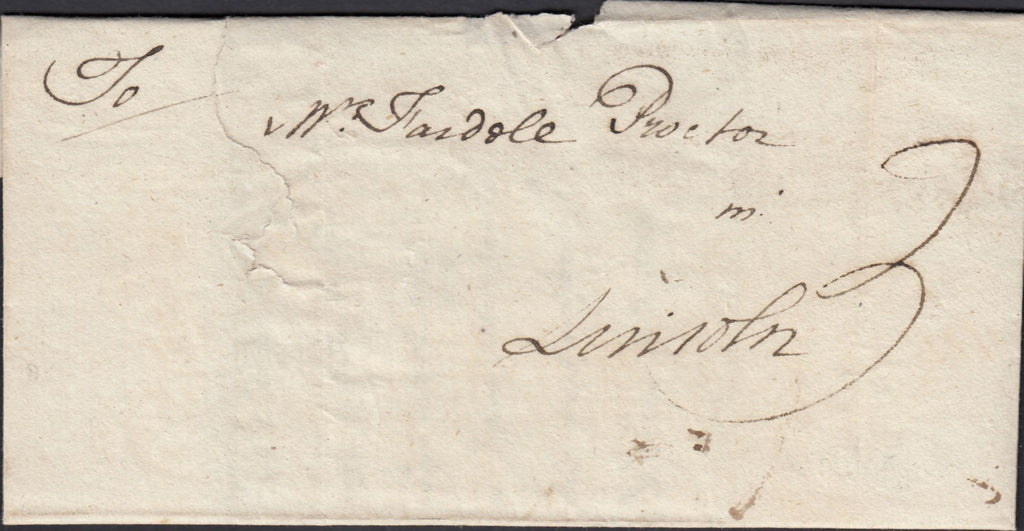 To
Mr. Fardele Proctor
in
Lincoln
3